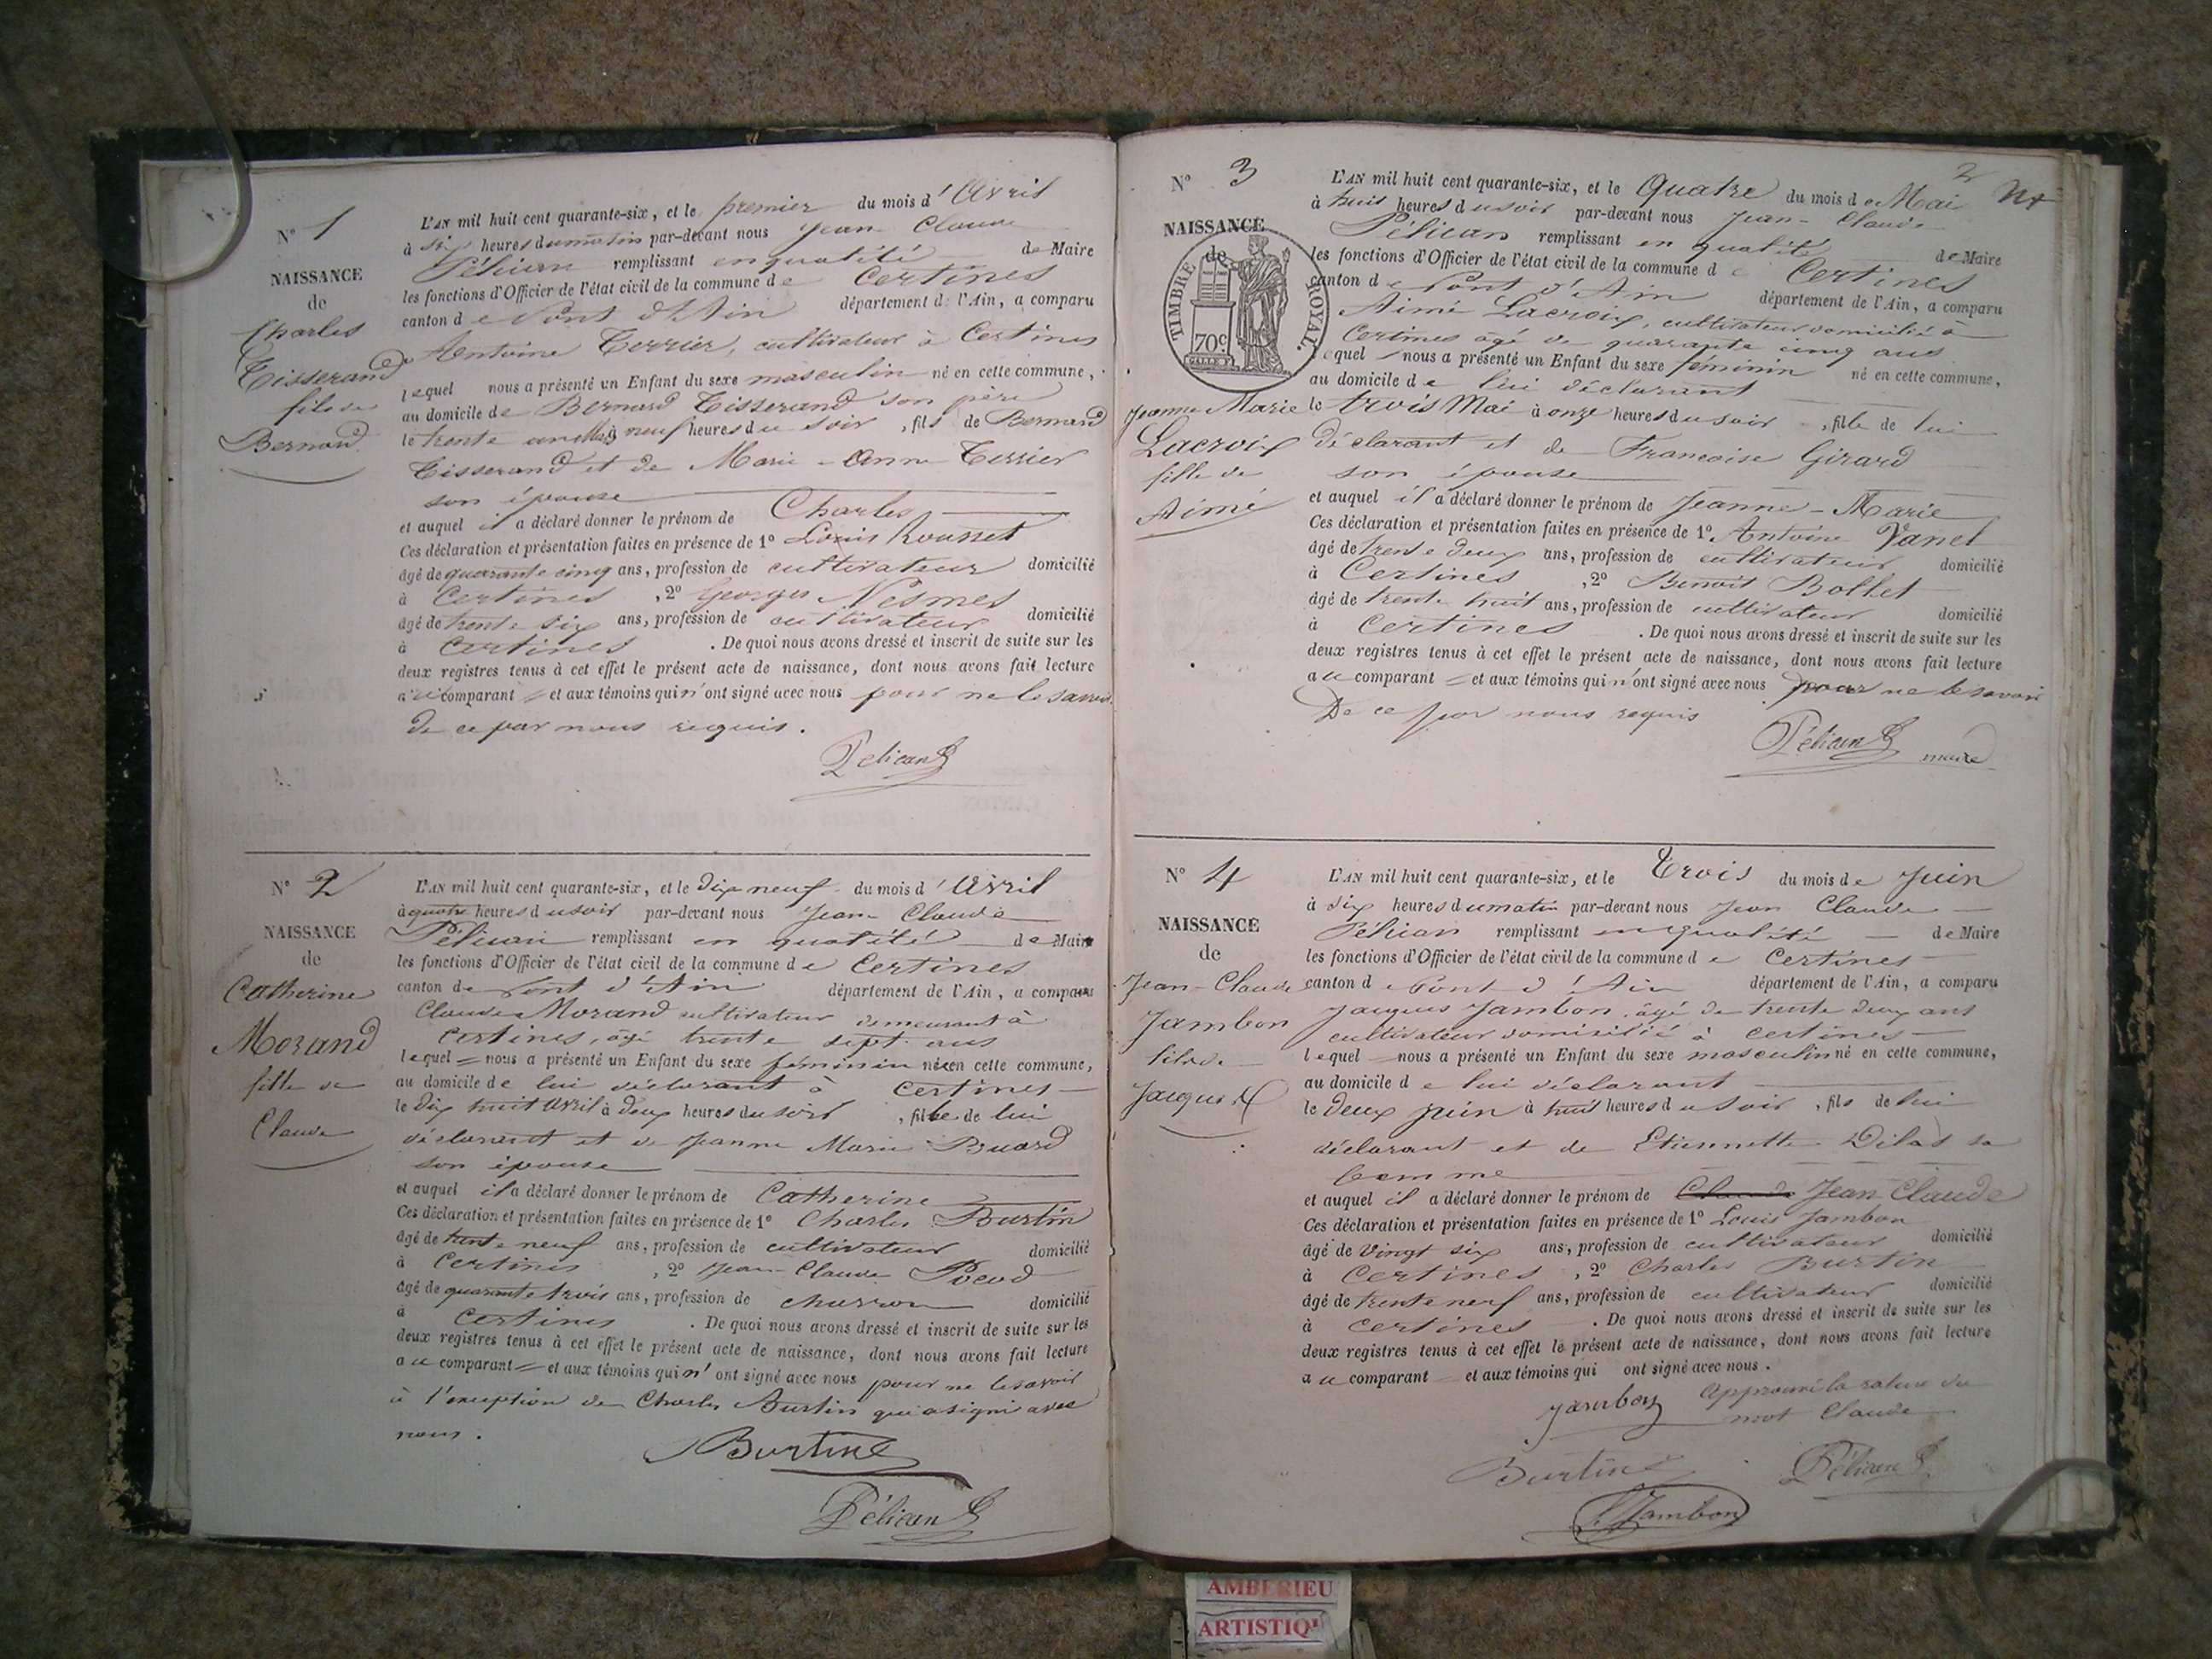 N° 1
NAISSANCE
de
Charles
Tisserand
fils de
Bernard
L'AN mil huit cent quarante-six, et le premier du mois d'Avril
à six heures du matin par-devant nous Jean Claude
Pélican remplissant en qualité de Maire
les fonctions d'Officier de l'état civil de la commune de Certines
canton de Pont d'Ain département de l'Ain, a comparu
Antoine Terrier, cultivateur à Certines
lequel nous a présenté un Enfant du sexe masculin né en cette commune,
au domicile de Bernard Tisserand son père
le trente un à neuf heures du soir, fils de Bernard
Tisserand et de Marie-Anne Terrier
son épouse
et auquel il a déclaré donner le prénom de Charles
Ces déclaration et présentation faites en présence de 1° Louis Rousset
âgé de quarante cinq ans, profession de cultivateur domicilié
à Certines, 2° Georges Nesmes
âgé de trente six ans, profession de cultivateur domicilié
à Certines. De quoi nous avons dressé et inscrit de suite sur les
deux registres tenus à cet effet le présent acte de naissance, dont nous avons fait lecture
au comparant et aux témoins qui n'ont signé avec nous pour ne le savoir
de ce par nous requis.
Pélican
N° 2
NAISSANCE
de
Catherine
Morand
fille de
Claude
L'AN mil huit cent quarante-six, et le dix neuf du mois d'Avril
à quatre heures du soir par-devant nous Jean Claude
Pélican remplissant en qualité de Maire
les fonctions d'Officier de l'état civil de la commune de Certines
canton de Pont d'Ain département de l'Ain, a comparu
Claude Morand cultivateur demeurant à
Certines, âgé trente sept ans
lequel = nous a présenté un Enfant du sexe féminin née en cette commune,
au domicile de lui déclarant à Certines
le dix huit Avril à deux heures du soir, fille de lui
déclarant et de Jeanne Marie Buard
son épouse
et auquel il a déclaré donner le prénom de Catherine
Ces déclaration et présentation faites en présence de 1° Charles Burtin
âgé de trente neuf ans, profession de cultivateur domicilié
à Certines, 2° Jean-Claude Pocod
âgé de quarante trois ans, profession de charron domicilié
à Certines. De quoi nous avons dressé et inscrit de suite sur les
deux registres tenus à cet effet le présent acte de naissance, dont nous avons fait lecture
au comparant = et aux témoins qui n'ont signé avec nous pour ne le savoir
à l'exception de Charles Burtin qui a signé avec
nous.
Burtin
Pélican
2
N° 3
NAISSANCE
de
TIMBRE ROYAL.
70c
Jeanne Marie
Lacroix
fille de
Aimé
L'AN mil huit cent quarante-six, et le Quatre du mois de Mai
à huit heures du soir par-devant nous Jean-Claude
Pélican remplissant en qualité de Maire
les fonctions d'Officier de l'état civil de la commune de Certines
canton de Pont d'Ain département de l'Ain, a comparu
Aimé Lacroix, cultivateur domicilié à
Certines âgé de quarante cinq ans
lequel nous a présenté un Enfant du sexe féminin né en cette commune,
au domicile de lui déclarant
le trois Mai à onze heures du soir, fille de lui
déclarant et de Francoise Girard
son épouse
et auquel il a déclaré donner le prénom de Jeanne-Marie
Ces déclaration et présentation faites en présence de 1° Antoine Vanel
âgé de trente deux ans, profession de cultivateur domicilié
à Certines, 2° Benoit Bollet
âgé de trente huit ans, profession de cultivateur domicilié
à Certines. De quoi nous avons dressé et inscrit de suite sur les
deux registres tenus à cet effet le présent acte de naissance, dont nous avons fait lecture
au comparant = et aux témoins qui n'ont signé avec nous pour ne le savoir
De ce par nous requis
Pélican maire
N° 4
NAISSANCE
de
Jean-Claude
Jambon
fils de
Jacques
L'AN mil huit cent quarante-six, et le Trois du mois de Juin
à six heures du matin par-devant nous Jean Claude
Pélican remplissant en qualité de Maire
les fonctions d'Officier de l'état civil de la commune de Certines
canton de Pont d'Ain département de l'Ain, a comparu
Jacques Jambon, âgé de trente deux ans
cultivateur domicilié à Certines
lequel nous a présenté un Enfant du sexe masculin né en cette commune,
au domicile de lui déclarant
le deux juin à huit heures du soir, fils de lui
déclarant et de Etiennette Dilas sa
femme
et auquel il a déclaré donner le prénom de Claude Jean Claude
Ces déclaration et présentation faites en présence de 1° Louis Jambon
âgé de vingt six ans, profession de cultivateur domicilié
à Certines, 2° Charles Burtin
âgé de trente neuf ans, profession de cultivateur domicilié
à Certines. De quoi nous avons dressé et inscrit de suite sur les
deux registres tenus à cet effet le présent acte de naissance, dont nous avons fait lecture
au comparant et aux témoins qui ont signé avec nous.
Jambon Approuvé la rature du
mot Claude
Burtin Pélican
L. Jambon
AMBERIEU
ARTISTIQU